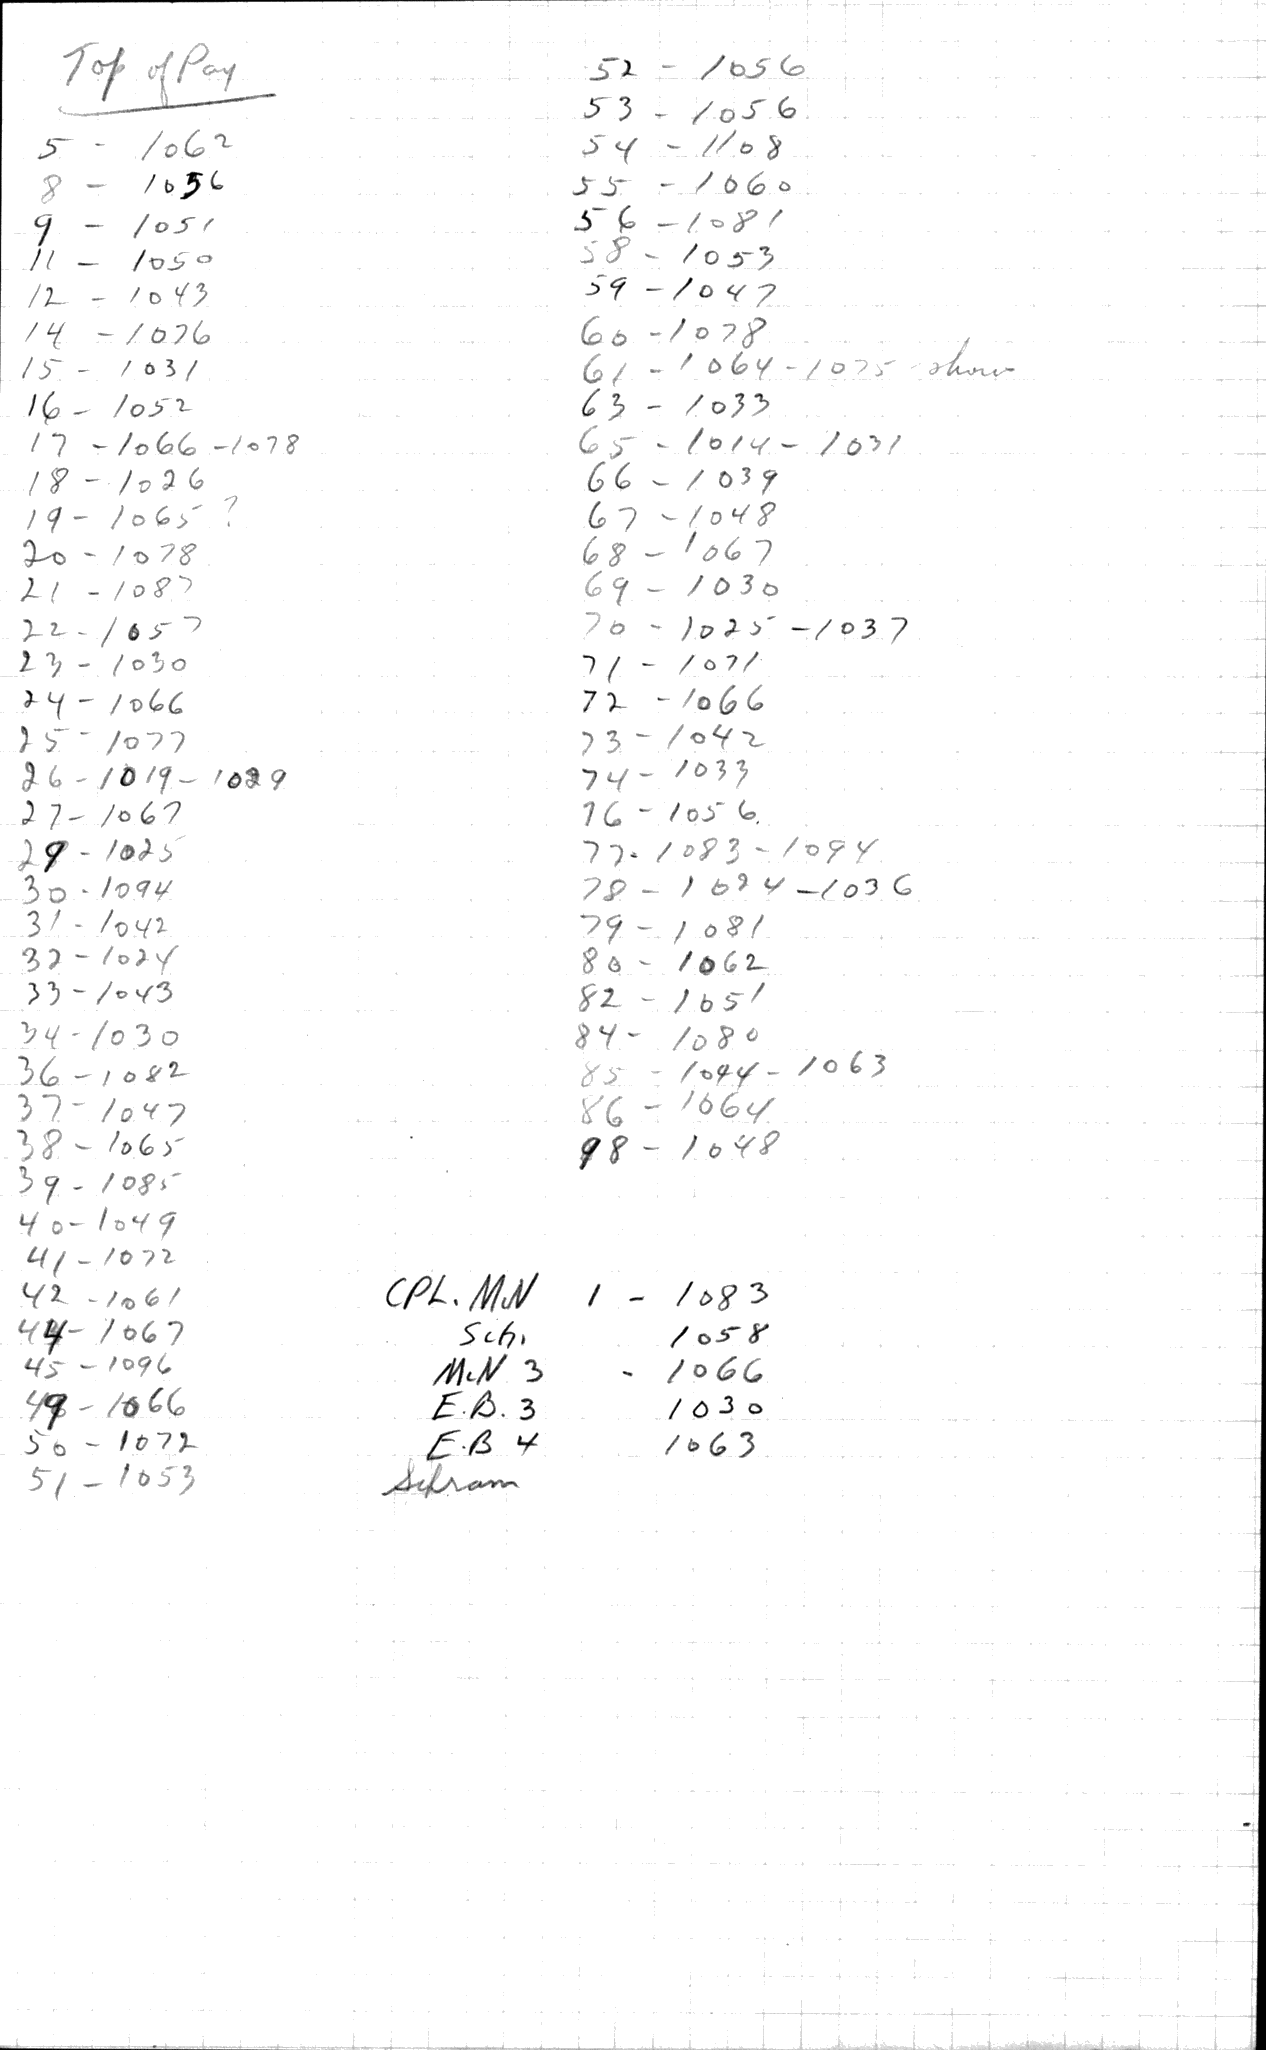 Top of Pay
5 - 1062
8 - 1056
9 - 1051
11 - 1050
12 - 1043
14 - 1076
15 - 1031
16 - 1052
17 - 1066 - 1078
18 - 1026
19 - 1065 ?
20 - 1078
21 - 1087
22 - 1057
23 - 1030
24 - 1066
25 - 1077
26 - 1019 - 1029
27 - 1067
29 - 1025
30 - 1094
31 - 1042
32 - 1024
33 - 1043
34 - 1030
36 - 1082
37 - 1047
38 - 1065
39 - 1085
40 - 1049
41 - 1072
42 - 1061
44 - 1067
45 - 1096
49 - 1066
50 - 1072
51 - 1053
52 - 1056
53 - 1056
54 - 1108
55 - 1060
56 - 1081
58 - 1053
59 - 1047
60 - 1078
61 - 1064 - 1075 show
63 - 1033
65 - 1014 - 1031
66 - 1039
67 - 1048
68 - 1067
69 - 1030
70 - 1025 - 1037
71 - 1071
72 - 1066
73 - 1042
74 - 1033
76 - 1056.
77 - 1083 - 1094
78 - 1024 - 1036
79 - 1081
80 - 1062
82 - 1051
84 - 1080
85 - 1044 - 1063
86 - 1064
98 - 1048
CPL. McN 1 - 1083
Sch. 1058
McN 3 - 1066
E.B. 3 1030
E.B 4 1063
Schram